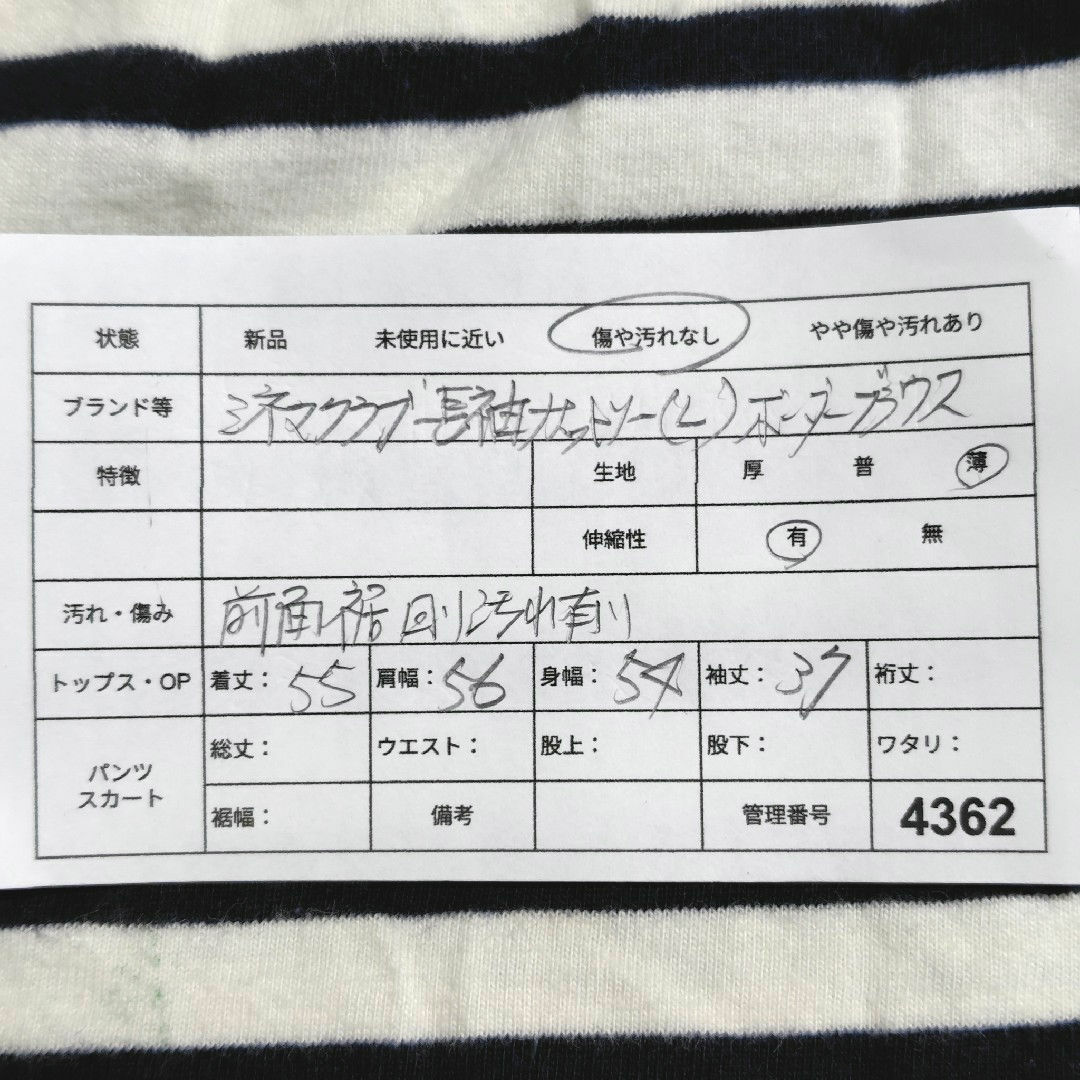 状態 新品 未使用に近い 傷や汚れなし やや傷や汚れあり
ブランド等 シネマクラブ 長袖カットソー(L)ボーダーブラウス
特徴 生地 厚 普 薄
伸縮性 有 無
汚れ・傷み 前 裾 汚れ有り
トップス・OP 着丈: 55 肩幅: 56 身幅: 54 袖丈: 37 裄丈:
パンツ スカート 総丈: ウエスト: 股上: 股下: ワタリ:
裾幅: 備考 管理番号 4362